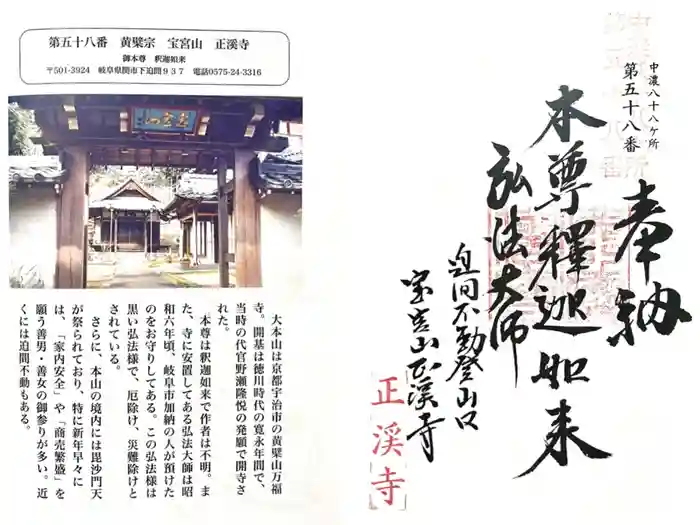 第五十八番　黄檗宗　宝宮山　正溪寺
御本尊　釈迦如来
〒501-3924　岐阜県関市下迫間９３７　電話0575-24-3316
大本山は京都宇治市の黄檗山万福
寺。開基は徳川時代の寛永年間で、
当時の代官野瀬隆悦の発願で開寺さ
れた。
本尊は釈迦如来で作者は不明。ま
た、寺に安置してある弘法大師は昭
和六年頃、岐阜市加納の人が預けた
のをお守りしてある。この弘法様は
黒い弘法様で、厄除け、災難除けと
されている。
さらに、本山の境内には毘沙門天
が祭られており、特に新年早々に
は、「家内安全」や「商売繁盛」を
願う善男・善女の御参りが多い。近
くには迫間不動もある。
中濃八十八ケ所
第五十八番
奉納
本尊釋迦如来
弘法大師
迫間不動登山口
宝宮山正溪寺
正溪寺